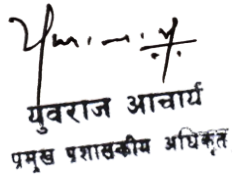 युवराज आचार्य
प्रमुख प्रशासकीय अधिकृत